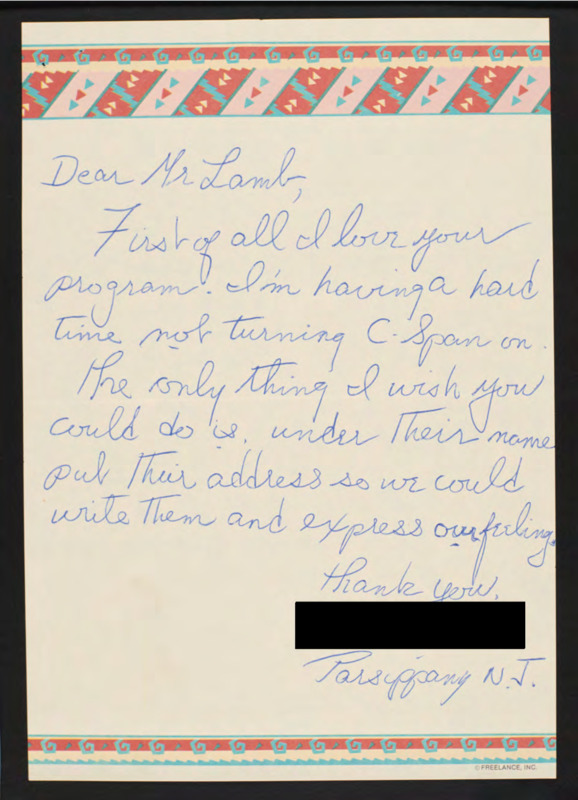 Dear Mr Lamb,
First of all I love your
program. I'm having a hard
time not turning C-Span on.
The only thing I wish you
could do is, under their name
put their address so we could
write them and express our feeling.
Thank you,
Parsippany N.J.
© FREELANCE, INC.